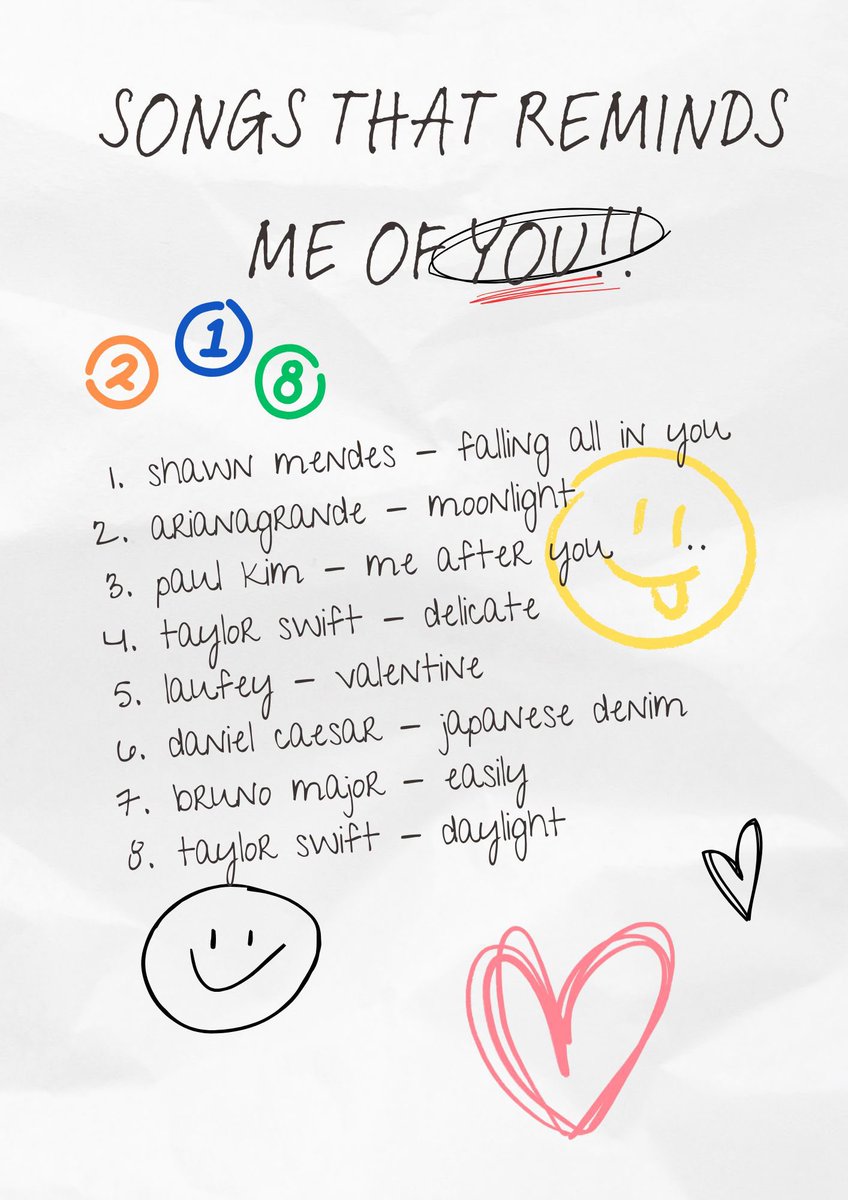 SONGS THAT REMINDS
ME OF YOU!!
2 1 8
1. shawn mendes – falling all in you
2. arianagrande – moonlight
3. paul kim – me after you ..
4. taylor swift – delicate
5. laufey – valentine
6. daniel caesar – japanese denim
7. bruno major – easily
8. taylor swift – daylight